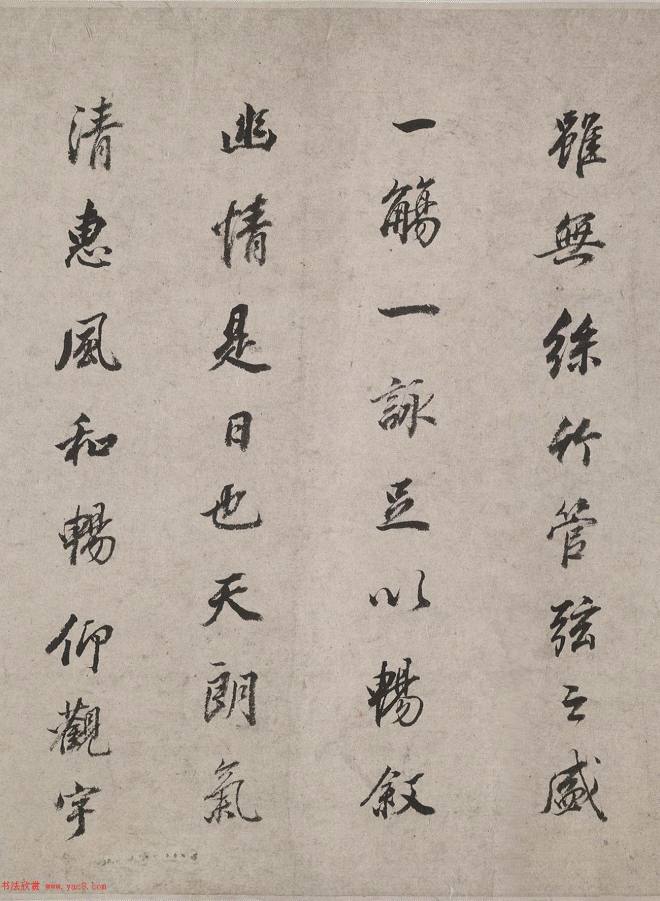 雖無絲竹管弦之盛
一觴一詠足以暢敘
幽情是日也天朗氣
清惠風和暢仰觀宇
书法欣赏 www.yac8.com